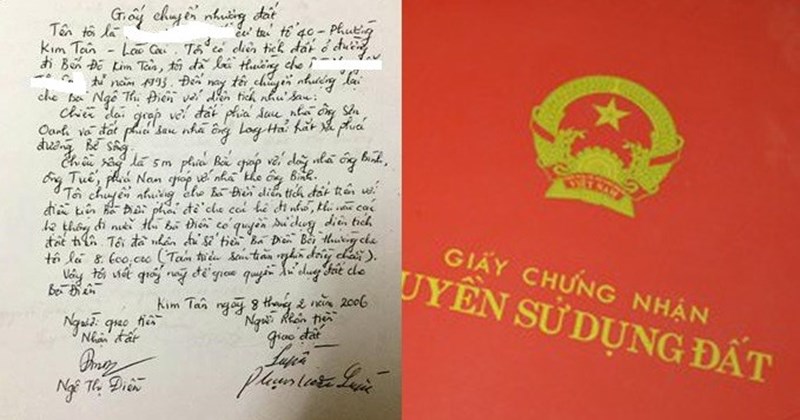 Giấy chuyển nhượng đất
Tên tôi là cư trú tổ 40 - Phường
Kim Tân - Lào Cai. Tôi có diện tích đất ở đường
đi Bến Đò Kim Tân, tôi đã bồi thường cho
từ năm 1993. Đến nay tôi chuyển nhượng lại
cho Bà Ngô Thị Điền với diện tích như sau:
Chiều dài giáp với đất phía sau nhà ông Sơn
Oanh và đất phía sau nhà ông Long Hải hắt ra phía
đường Bờ Sông.
Chiều rộng là 5m phía Bắc giáp với dãy nhà ông Bình,
ông Tuế, phía Nam giáp với nhà kho ông Bình.
Tôi chuyển nhượng cho Bà Điền diện tích đất trên với
điều kiện Bà Điền phải để cho các hộ đi nhờ, khi nào các
hộ không đi nữa thì Bà Điền có quyền sử dụng diện tích
đất trên. Tôi đã nhận đủ số tiền Bà Điền Bồi thường cho
tôi là 8.600,000 (Tám triệu sáu trăm nghìn đồng chẵn).
Vậy tôi viết giấy này để giao quyền sử dụng đất cho
Bà Điền
Kim Tân ngày 8 tháng 2 năm 2006
Người giao tiền Người Nhận tiền
Nhận đất Giao đất
Ngô Thị Điền
VIỆT NAM
GIẤY CHỨNG NHẬN
UYỀN SỬ DỤNG ĐẤT